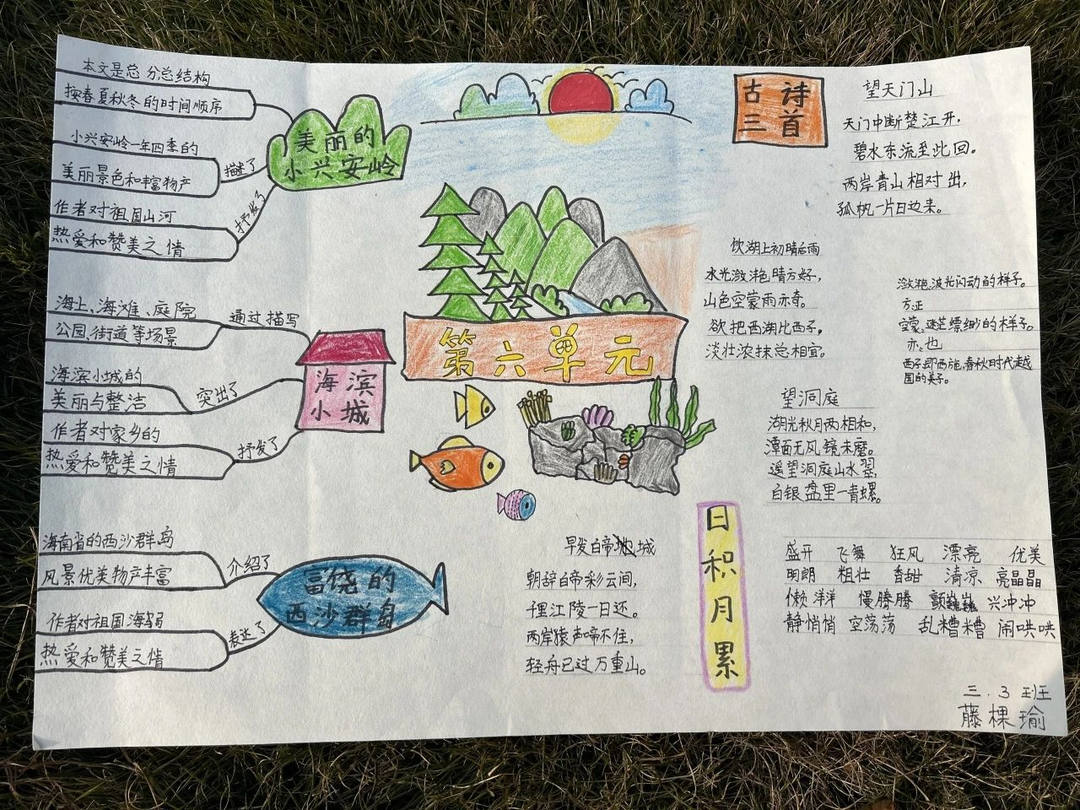 本文是总分总结构
按春夏秋冬的时间顺序
小兴安岭一年四季的
美丽景色和丰富物产
描述了
作者对祖国山河
热爱和赞美之情
抒发了
美丽的
小兴安岭
海上、海滩、庭院
公园、街道等场景
通过描写
海滨小城的
美丽与整洁
突出了
作者对家乡的
热爱和赞美之情
抒发了
海滨
小城
海南省的西沙群岛
风景优美物产丰富
介绍了
作者对祖国海岛
热爱和赞美之情
表达了
富饶的
西沙群岛
第六单元
古诗
三首
望天门山
天门中断楚江开,
碧水东流至此回。
两岸青山相对出,
孤帆一片日边来。
饮湖上初晴后雨
水光潋滟晴方好,
山色空蒙雨亦奇。
欲把西湖比西子,
淡壮浓抹总相宜。
潋滟,波光闪动的样子。
方,正
空蒙,迷茫缥缈的样子。
亦,也
西子,即西施,春秋时代越
国的美子。
望洞庭
湖光秋月两相和,
潭面无风镜未磨。
遥望洞庭山水翠,
白银盘里一青螺。
早发白帝城
朝辞白帝彩云间,
千里江陵一日还。
两岸猿声啼不住,
轻舟已过万重山。
日积月累
盛开 飞舞 狂风 漂亮 优美
明朗 粗壮 香甜 清凉 亮晶晶
懒洋洋 慢腾腾 颤巍巍 兴冲冲
静悄悄 空荡荡 乱糟糟 闹哄哄
三.3班
藤棵瑜